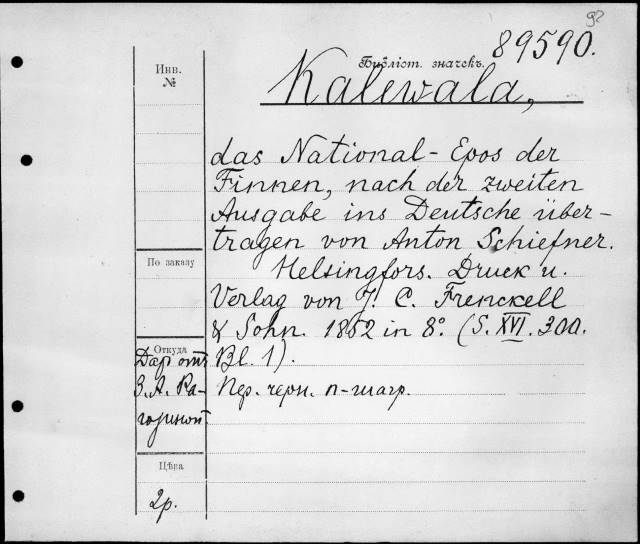 92
89590.
Библіот. значекъ.
Kalewala,
Инв.
№
das National-Epos der
Finnen, nach der zweiten
Ausgabe ins Deutsche über-
tragen von Anton Schiefner.
По заказу
Helsingfors. Druck u.
Verlag von J. C. Frenckell
& Sohn. 1852 in 8º. (S. XVI. 300.
Bl. 1).
Откуда
Дар отъ
З. А. Ра-
гозиной
Пер. черн. п-шагр.
Цѣна
2р.